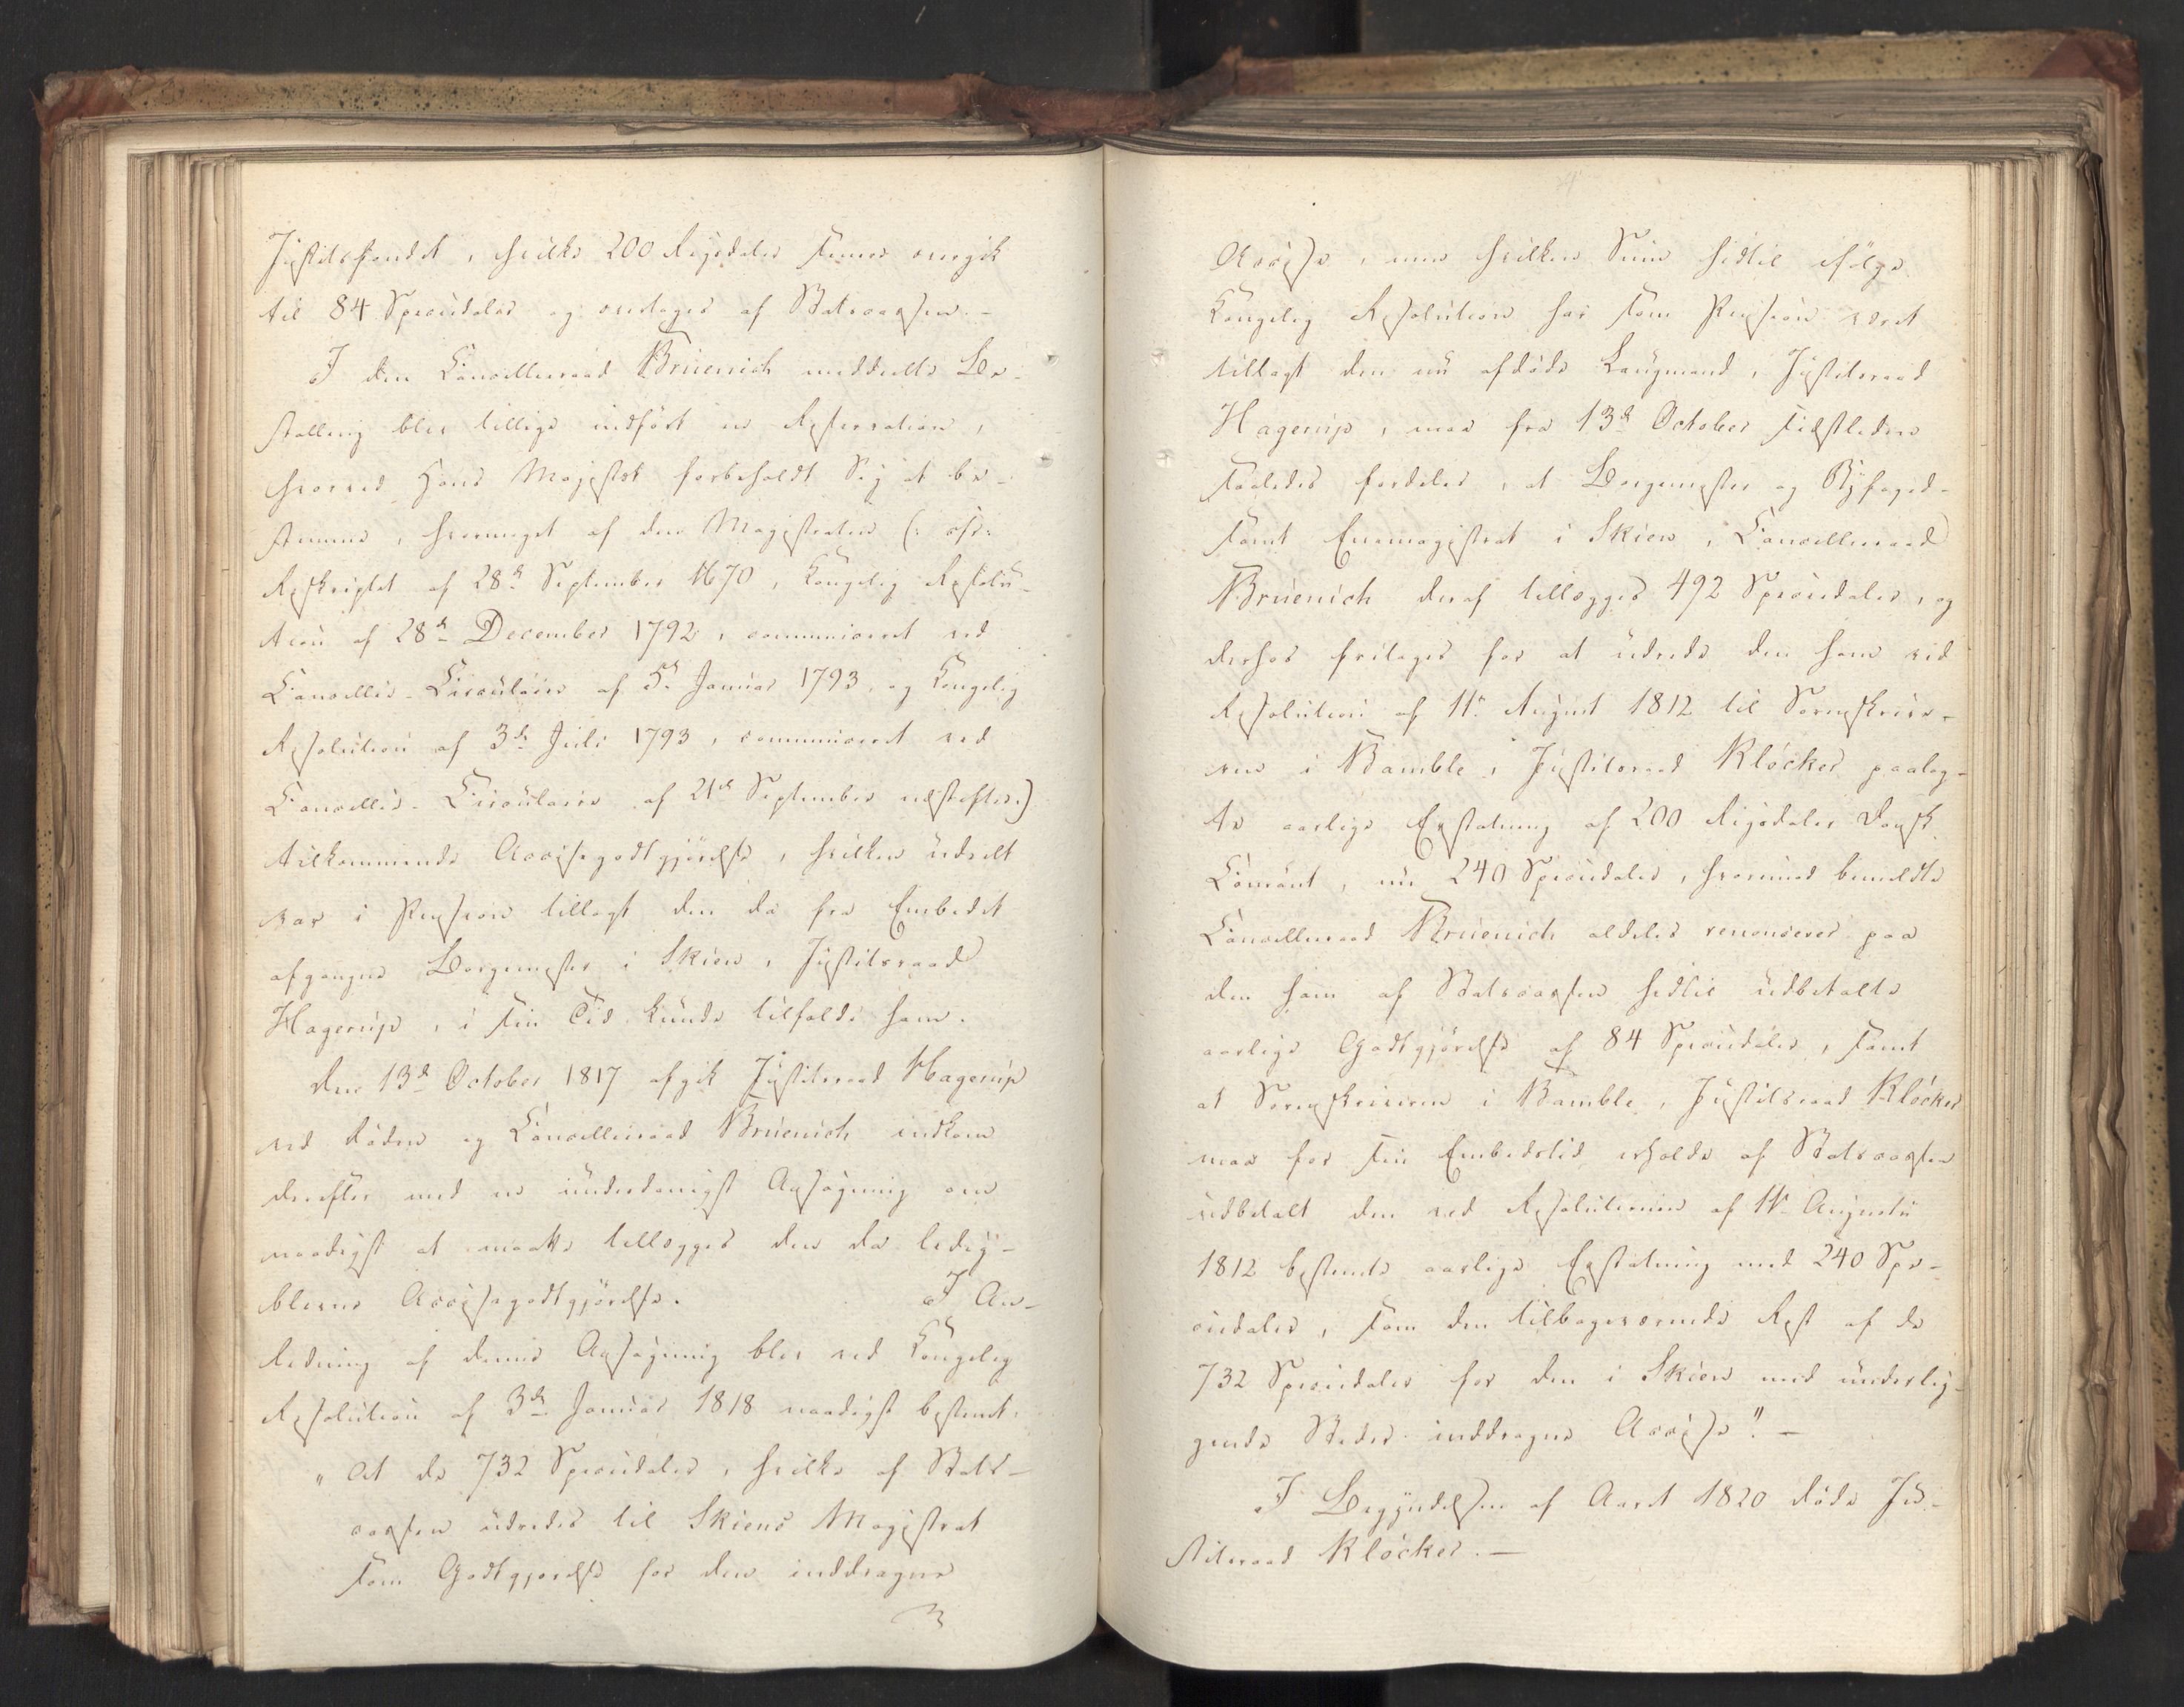 Justitsfondet, hvilke 200 Rigsdaler siden overgik
til 84 Speciedaler og overtoges af Statscassen. –
I den Cancelliraad Brüenich meddeelte Be-
stalling blev tillige indført en Reservation,
hvorved Hans Majestæt forbeholdt Sig at be-
stemme, hvormeget af den Magistraten (: efter
Rescriptet af 28de September 1670, Kongelig Resolu-
tion af 28de December 1792, communiceret ved
Cancellie-Circulaire af 5te Januar 1793, og Kongelig
Resolution af 3de Juli 1793, communiceret ved
Cancellie-Circulaire af 21de September næstefter:)
tilkommende Accisegodtgjörelse, hvilken udeelt
var i Pension tillagt den da fra Embedet
afgangne Borgemester i Skien, Justitsraad
Hagerup, i sin Tid kunde tilfalde ham.
Den 13de October 1817 afgik Justitsraad Hagerup
ved Döden og Cancelliraad Brüenich indkom
derefter med en underdanigst Ansögning om
naadigst at maatte tillægges den da ledig-
blevne Accisegodtgjörelse. I An-
ledning af denne Ansögning blev ved Kongelig
Resolution af 3de Januar 1818 naadigst bestemt:
„At de 732 Speciedaler, hvilke af Stats-
cassen udredes til Skiens Magistrat
som Godtgjörelse for den inddragne
Accise, men hvilken Sum hidtil ifölge
Kongelig Resolution har som Pension været
tillagt den nu afdöde Laugmand, Justitsraad
Hagerup, maa fra 13de October sidstleden
saaledes fordeles, at Borgemester og Byfoged
samt Enemagistrat i Skien, Cancelliraad
Brüenich deraf tillægges 492 Speciedaler, og
derhos fritages for at udrede den ham ved
Resolution af 11te August 1812 til Sorenskrive-
ren i Bamble, Justitsraad Klöcker paalag-
te aarlige Erstatning af 200 Rigsdaler Dansk
Courant, nu 240 Speciedaler, hvorimod bemeldte
Cancelliraad Brüenich aldeles renoncerer paa
den ham af Statscassen hidtil udbetalte
aarlige Godtgjörelse af 84 Speciedaler, samt
at Sorenskriveren i Bamble, Justitsraad Klöcker
maa for sin Embedstid erholde af Statscassen
udbetalt den ved Resolutionen af 11te Augusti
1812 bestemte aarlige Erstatning med 240 Spe-
ciedaler, som den tilbageværende Rest af de
732 Speciedaler for den i Skien med underlig-
gende Steder inddragne Accise". –
I Begyndelsen af Aaret 1820 döde Ju-
stitsraad Klöcker. –